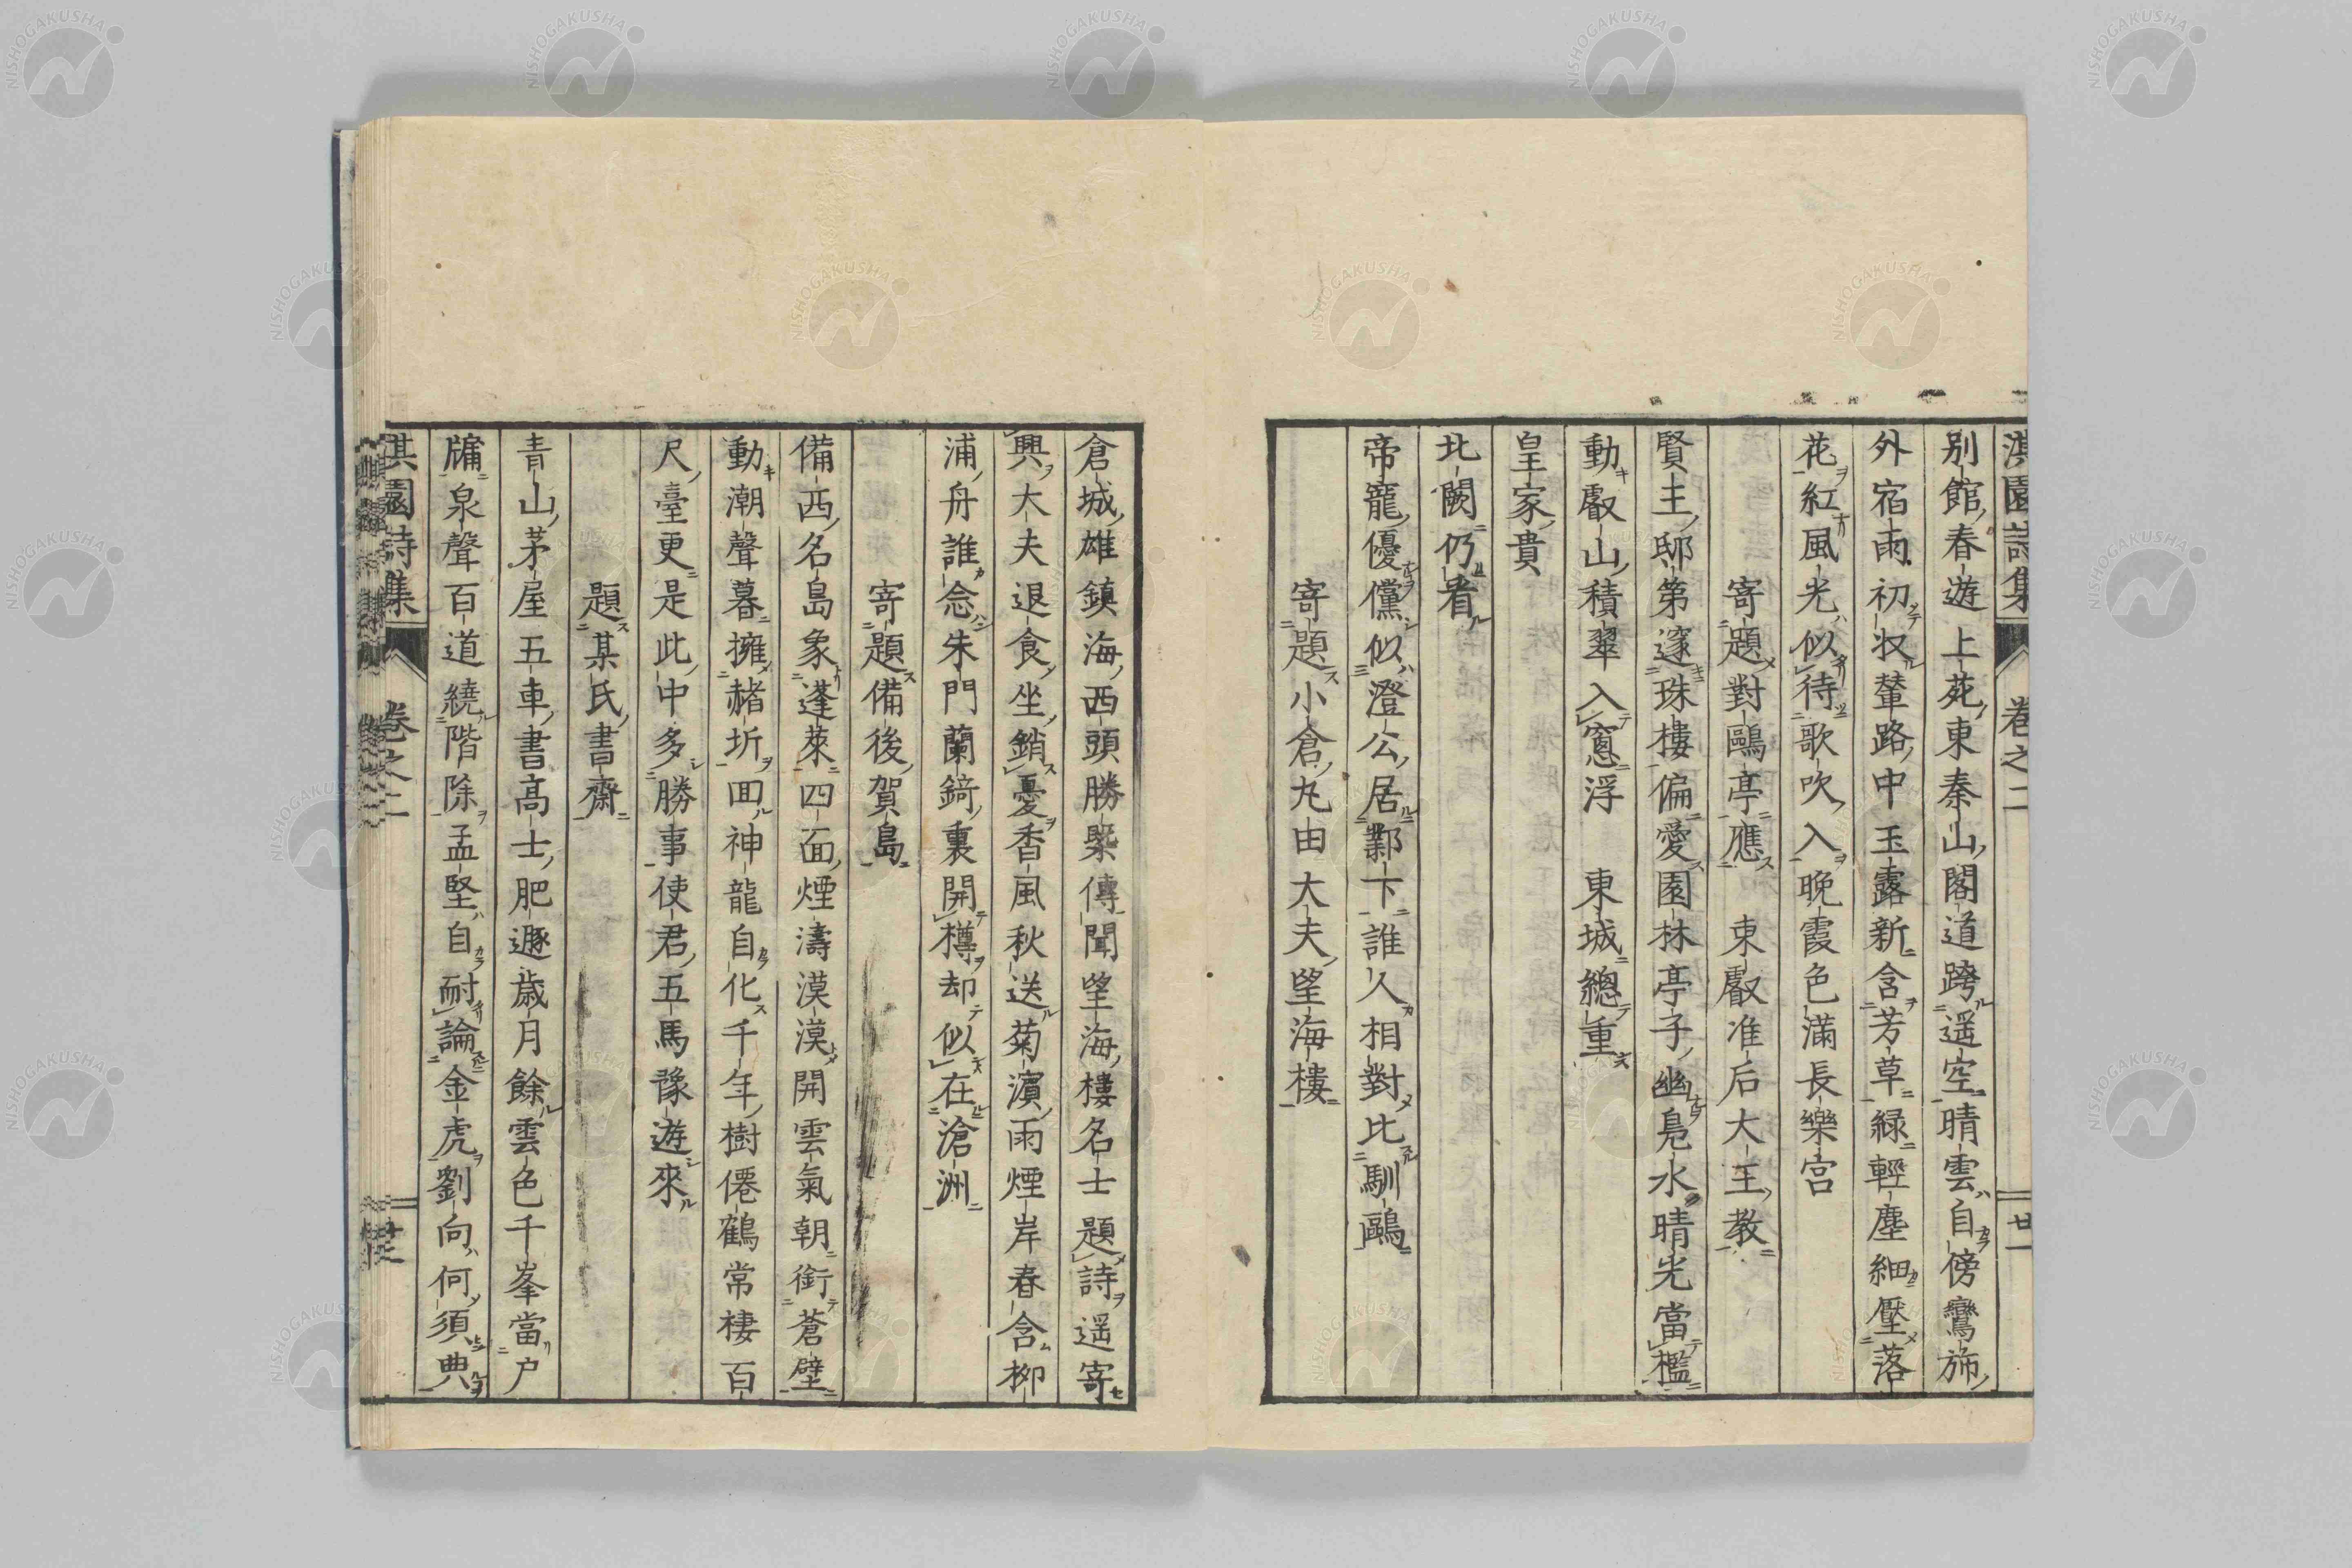 淇園詩集 卷之二 廿一
別館春遊上苑東秦山閣道跨遥空晴雲自傍鸞旂
外宿雨初収輦路中玉露新含芳草緑輕塵細壓落
花紅風光似待歌吹入晚霞色滿長樂宮
寄題對鷗亭應 東叡准后大王教
賢王邸第邃珠樓偏愛園林亭子幽鳧水晴光當檻
動叡山積翠入窻浮 東城總重
皇家貴
北闕仍看
帝寵優儻似澄公居鄴下誰人相對比馴鷗
寄題小倉丸田大夫望海樓
倉城雄鎮海西頭勝槩傳聞望海樓名士題詩遥寄
興大夫退食坐銷憂香風秋送菊濱雨煙岸春含柳
浦舟誰念朱門蘭錡裏開樽却似在滄洲
寄題備後賀島
備西名島象蓬萊四面煙濤漠漠開雲氣朝銜蒼壁
動潮聲暮擁赭圻回神龍自化千年樹僊鶴常棲百
尺臺更是此中多勝事使君五馬豫遊來
題某氏書齋
青山茅屋五車書高士肥遯歲月餘雲色千峯當戶
牖泉聲百道繞階除孟堅自耐論金虎劉向何須典
淇園詩集 卷之二